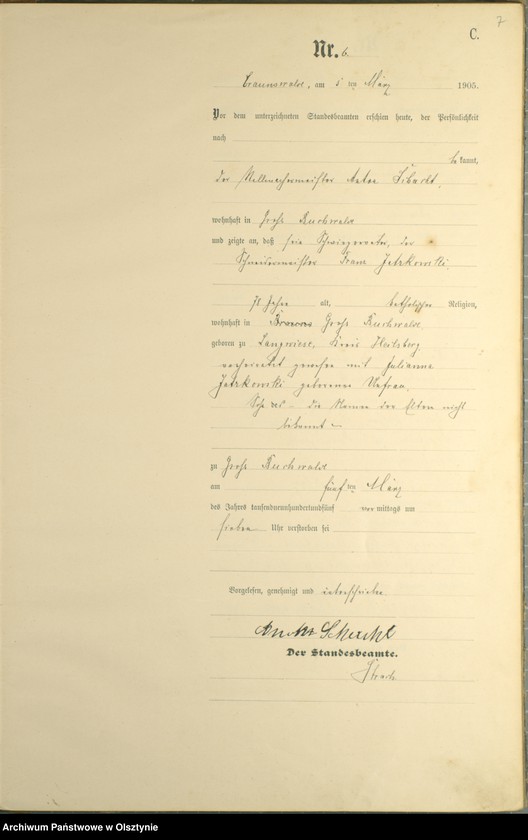 7
C.
Nr. 6
Braunswalde, am 5 ten März 1905.
Vor dem unterzeichneten Standesbeamten erschien heute, der Persönlichkeit
nach
bekannt,
der Stellmachermeister
wohnhaft in Groß Buchwalde
und zeigte an, daß sein Schwiegervater, der
Schneidermeister Franz Jatzkowski
78 Jahre alt, katholischer Religion,
wohnhaft in Groß Buchwalde
geboren zu Langwiese, Kreis Heilsberg
verheiratet gewesen mit Julianna
Jatzkowski geborenen
Sohn des — die Namen der Eltern nicht
bekannt —
zu Groß Buchwalde
am fünf ten März
des Jahres tausendneunhundertundfünf vor mittags um
sieben Uhr verstorben sei
Vorgelesen, genehmigt und unterschrieben
Der Standesbeamte.
Archiwum Państwowe w Olsztynie